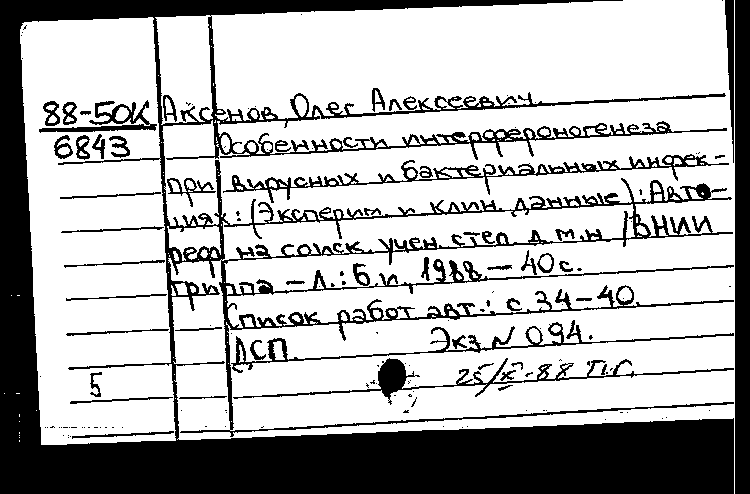 88-50К Аксенов, Олег Алексеевич.
6843 Особенности интерфероногенеза
при вирусных и бактериальных инфек-
циях: (Эксперим. и клин. данные): Авто-
реф. на соиск. учен. степ. д.м.н. /ВНИИ
гриппа – Л.: Б.и., 1988. – 40 с.
Список работ авт.: с. 34–40.
ДСП. Экз. N 094.
5 25/X-88 П.Г.